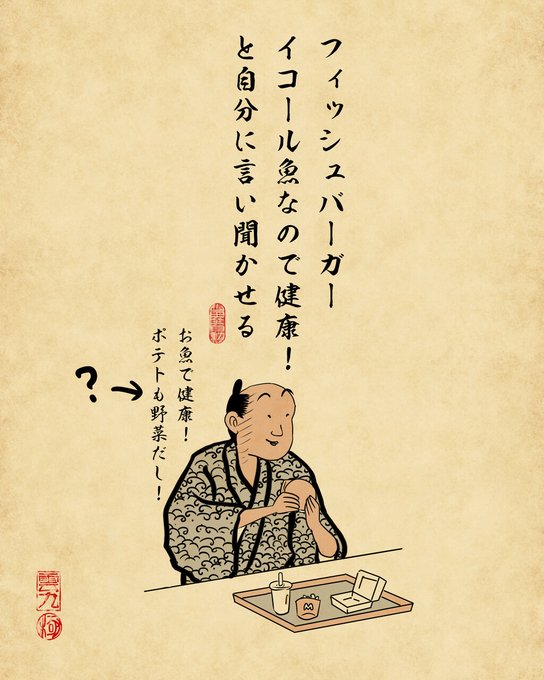 フィッシュバーガー
イコール魚なので健康！
と自分に言い聞かせる
お魚で健康！
ポテトも野菜だし！
？
M